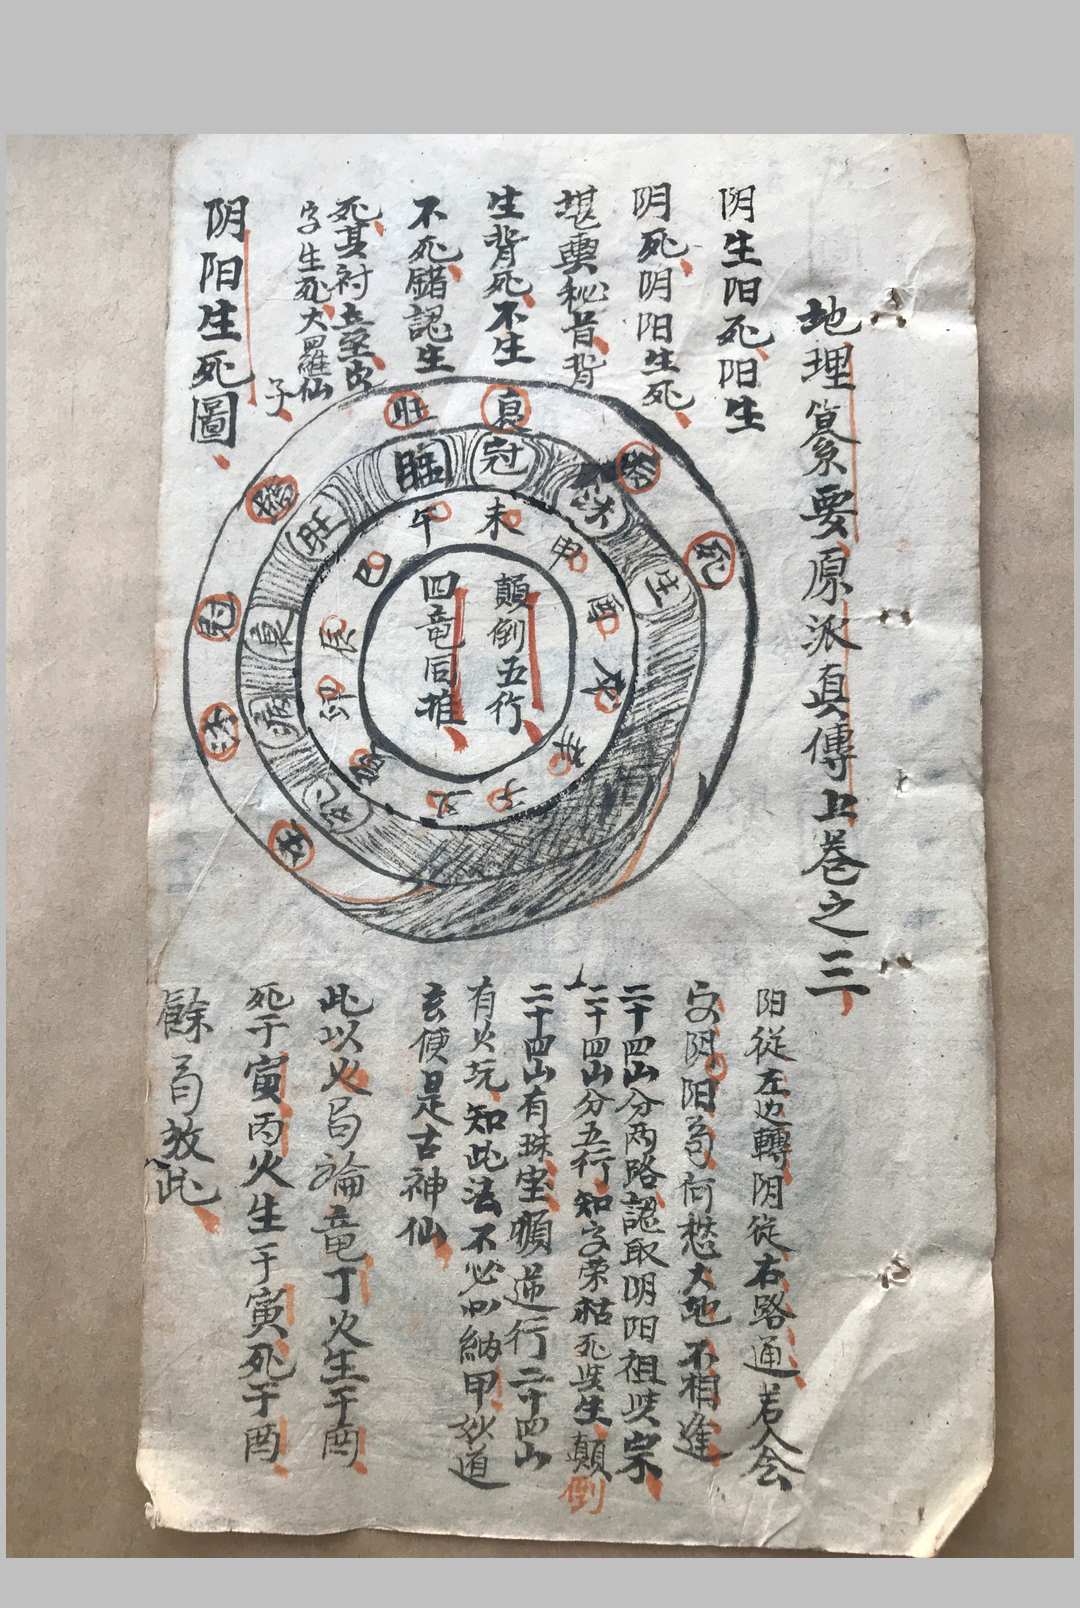 地理纂要原派真傳上卷之三
阴生阳死阳生
阴死阴阳生死
堪輿秘旨背
生背死不生
不死錯認生
死其
字生死大羅仙
子
阴阳生死圖
旺
衰
死
冠
沐
養
臨
冠
沐
生
旺
衰
病
死
午
未
申
酉
亥
子
丑
寅
卯
辰
巳
顛倒五行
四竜同推
阳從左边轉阴從右路通若人会
安阴阳苟何愁大地不相逢
二十四山分两路認取阴阳祖與宗
二十四山分五行知字荣枯死與生顛倒
二十四山有珠宝順逆行二十四山
有火坑知此法不必以納甲妙道
玄便是古神仙
此以火局論竜丁火生于酉
死于寅丙火生于寅死于酉
餘局放此